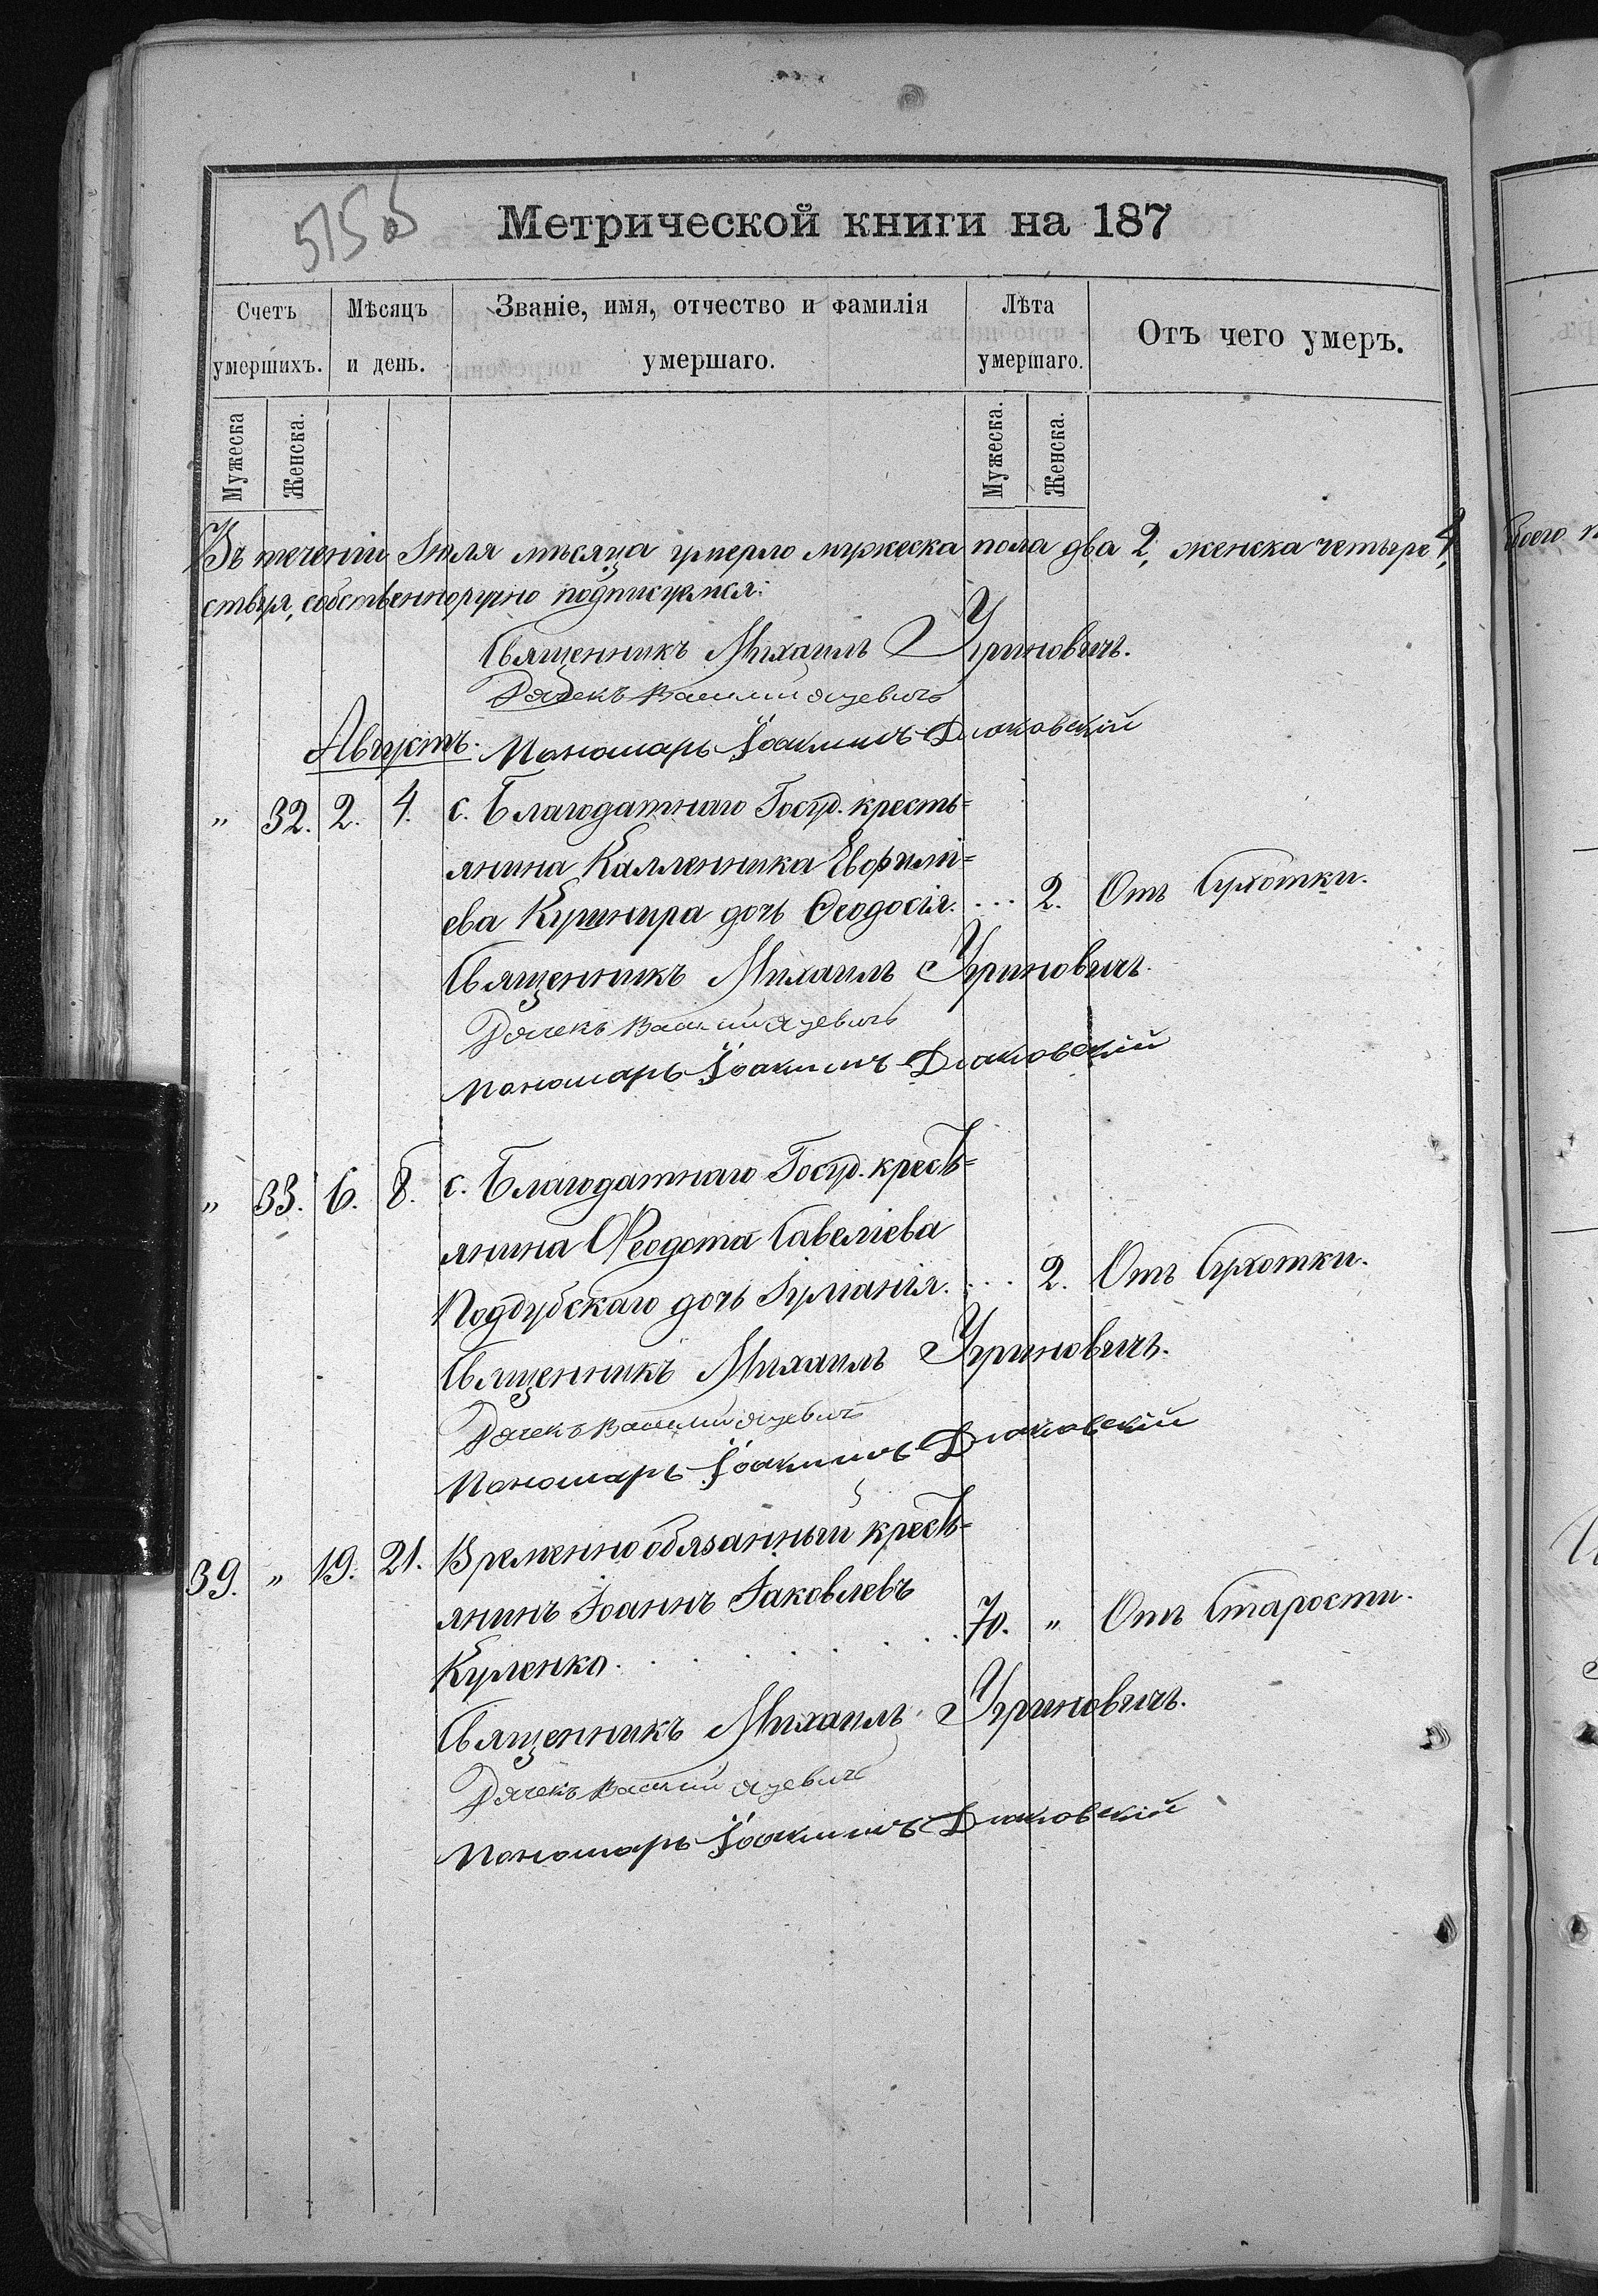 515об
Метрической книги на 187
Счетъ умершихъ. Мѣсяцъ и день. Званіе, имя, отчество и фамилія умершаго. Лѣта умершаго. Отъ чего умеръ.
Мужеска Женска. Мужеска. Женска.
Въ теченіи Іюля мѣсяца умерло мужеска пола два 2, женска четыре 4,
ствуя, собственноручно подписуемся:
Священникъ Михаилъ Угриновичъ.
Дячекъ Василий Яцевичъ
Августъ. Пономарь Іоакимъ Дияковскій
„ 32. 2. 4. с. Благодатнаго Госуд. кресть=
янина Калленника Евфимі=
ева Кушнира дочь Ѳеодосія. ... 2. Отъ Сухотки.
Священникъ Михаилъ Угриновичъ.
Дячекъ Василий Яцевичъ
Пономарь Іоакимъ Дияковскій
„ 33. 6. 8. с. Благодатнаго Госуд. кресть=
янина Ѳеодота Савеліева
Поддубскаго дочь Іуліанія. ... 2. Отъ Сухотки.
Священникъ Михаилъ Угриновичъ.
Дячекъ Василий Яцевичъ
Пономарь Іоакимъ Дияковскій
39. „ 19. 21. Временнообязанный кресть=
янинъ Іоаннъ Іаковлевъ
Куленко. . . . . . . 70. „ Отъ Старости.
Священникъ Михаилъ Угриновичъ.
Дячекъ Василий Яцевичъ
Пономарь Іоакимъ Дияковскій